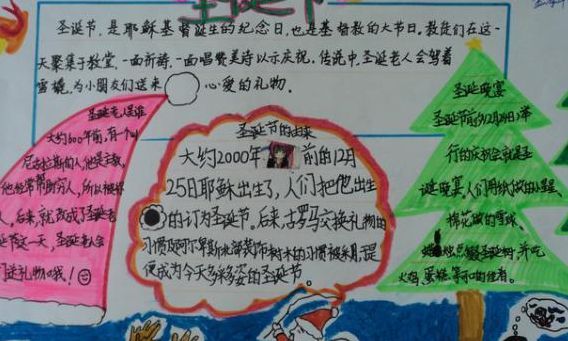 圣诞节
圣诞节,是耶稣基督诞生的纪念日,也是基督教的大节日。教徒们在这一
天聚集于教堂,一面祈祷,一面唱赞美诗以示庆祝。传说中,圣诞老人会驾着
雪橇,为小朋友们送来 心爱的礼物。
圣诞老人是谁
大约1600年前,有一个叫
尼古拉斯的人,他是主教,
他经常帮助穷人,所以被称
人。后来,就改成了圣诞老
诞节这一天,圣诞老人会
送礼物哦!
圣诞节的由来
大约2000年 前的12月
25日耶稣出生了,人们把他出生
的订为圣诞节。后来,古罗马交换礼物的
习惯及
装饰树木的习惯被采用,
便成为今天多彩多姿的圣诞节。
圣诞晚宴
圣诞节前夕(12月24日)举
行的庆祝会就是圣
诞晚宴。人们用纸做的小星星、
棉花做的雪球、
蜡烛点缀圣诞树,并吃
火鸡、蛋糕等